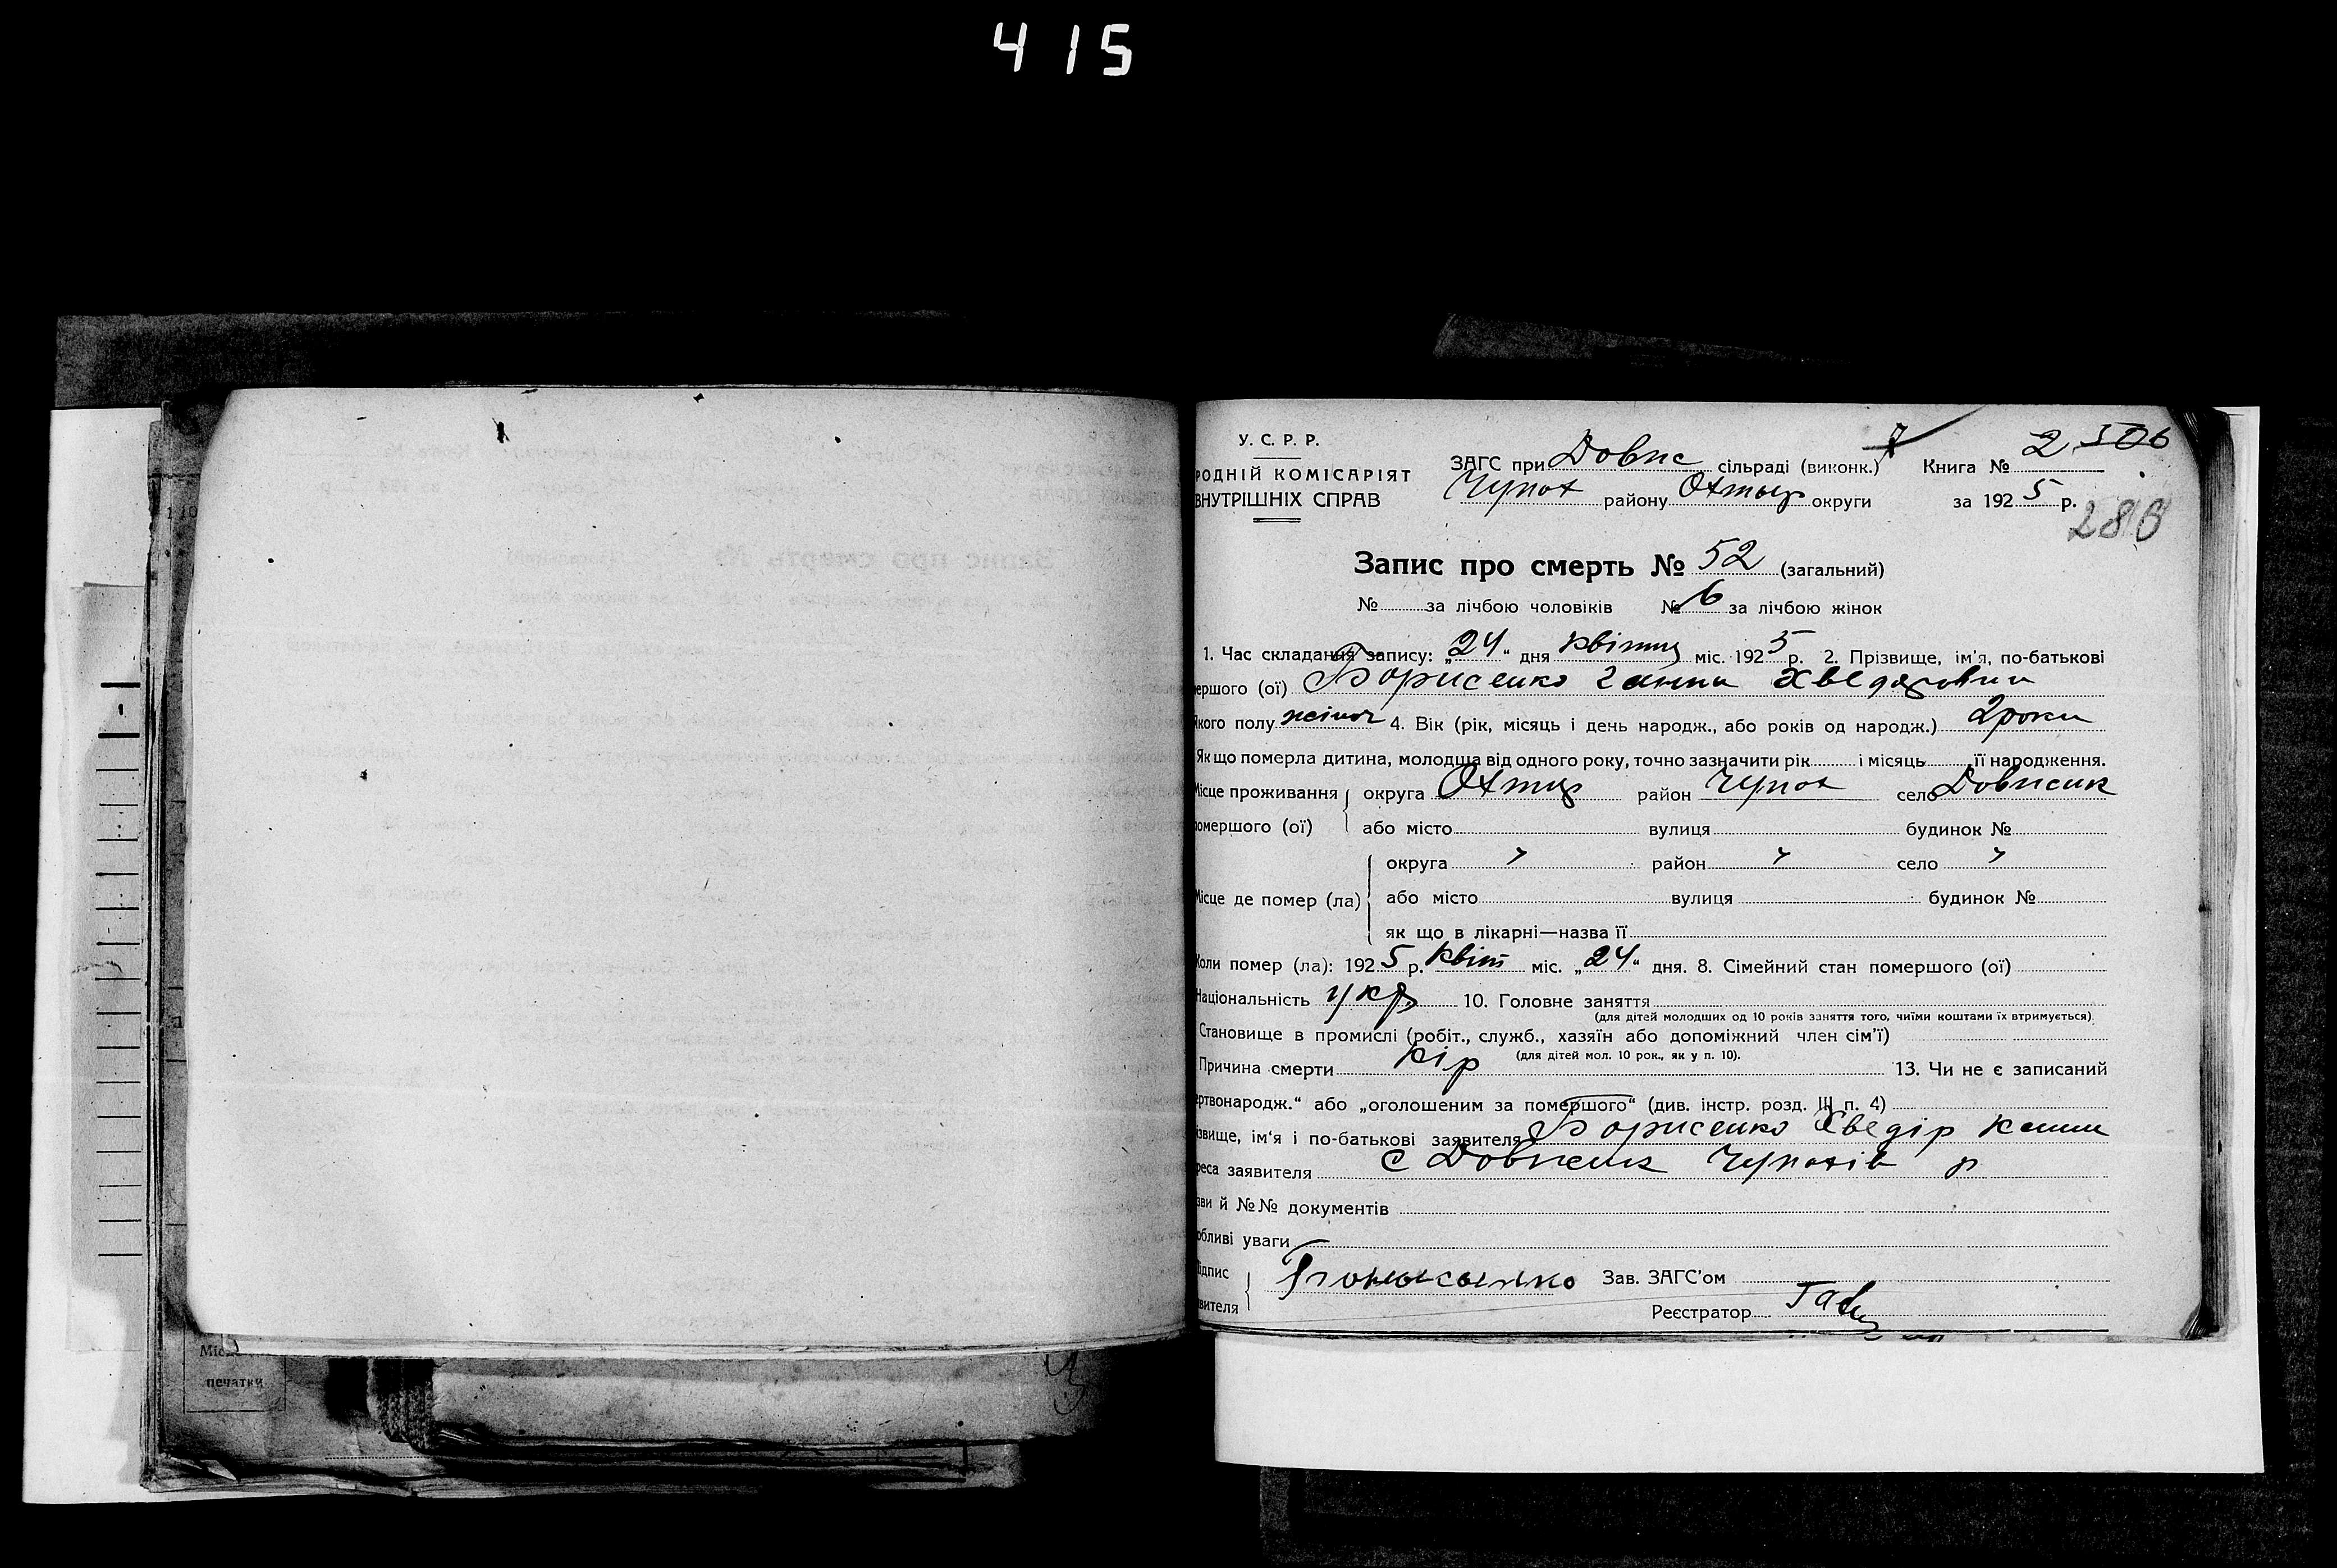 415
У. С. Р. Р.
РОДНІЙ КОМІСАРІЯТ
ВНУТРІШНІХ СПРАВ
ЗАГС при Довис сільраді (виконк.)
Чупах району Охтыр округи
Книга № 2 506
за 1925 р.
286
Запис про смерть № 52 (загальний)
№ за лічбою чоловіків № 6 за лічбою жінок
1. Час складання запису: „24“ дня квітня міс. 1925 р. 2. Прізвище, ім'я, по-батькові
ершого (ої) Борисенко Ганна Хведоровна
якого полу жіноч 4. Вік (рік, місяць і день народж., або років од народж.) 2 роки
Як що померла дитина, молодша від одного року, точно зазначити рік і місяць її народження.
Місце проживання округа Охтир район Чупах село
омершого (ої) або місто вулиця будинок №
округа " район " село "
Місце де помер (ла) або місто вулиця будинок №
як що в лікарні—назва її
Коли помер (ла): 1925 р. квіт міс. „24“ дня. 8. Сімейний стан помершого (ої)
Національність укр 10. Головне заняття
(для дітей молодших од 10 років заняття того, чиїми коштами їх втримується)
Становище в промислі (робіт., служб., хазяїн або допоміжний член сім'ї)
(для дітей мол. 10 рок., як у п. 10).
Причина смерти кір 13. Чи не є записаний
ертвонародж.“ або „оголошеним за помершого“ (див. інстр. розд. III п. 4)
звище, ім'я і по-батькові заявителя Борисенко Хведір
реса заявителя с Чупахів р
зви й №№ документів
обливі уваги
ідпис
вителя
Зав. ЗАГС'ом
Реєстратор
Міс
печатки